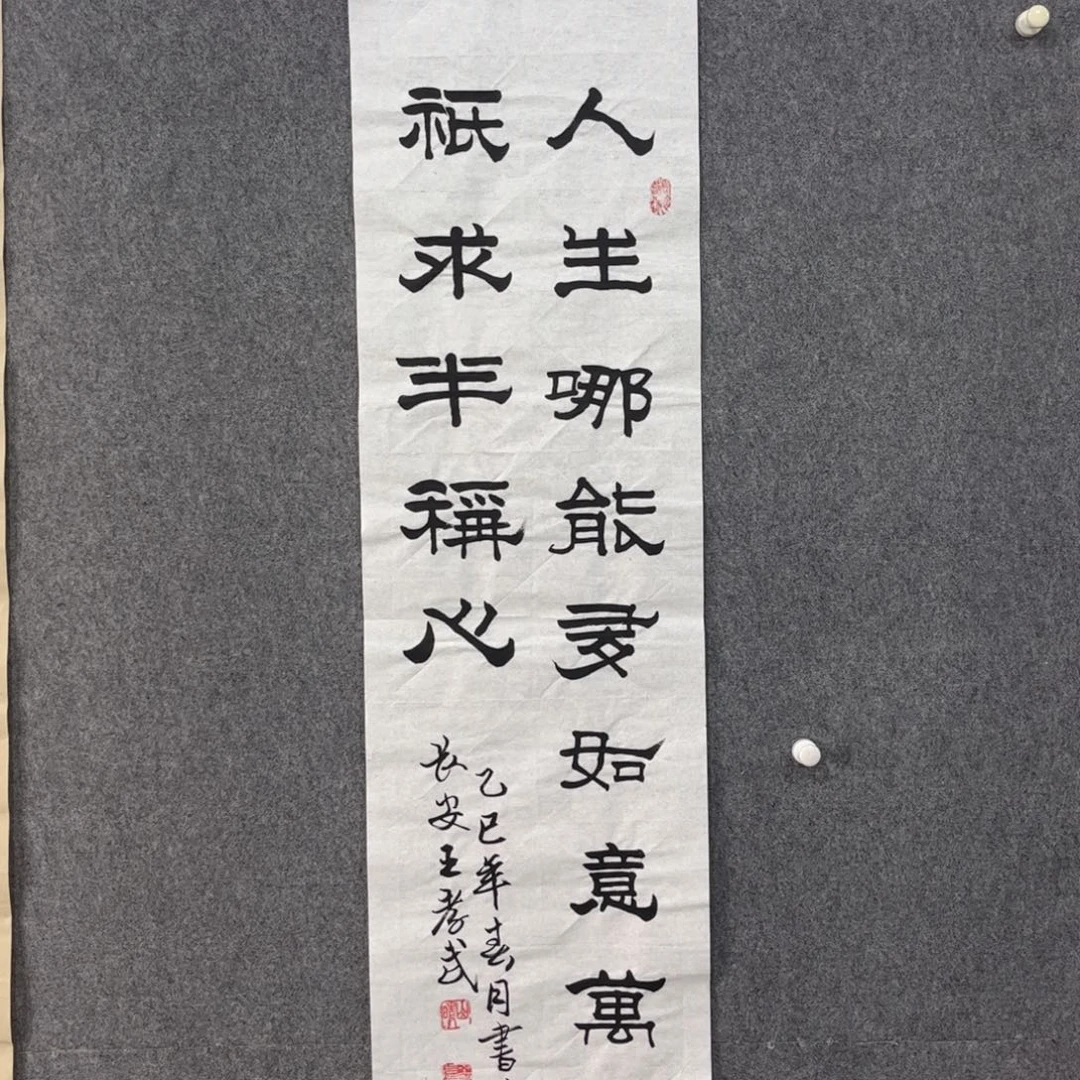 人生哪能多如意萬
祇求半稱心
乙巳年春月書
長安王孝武